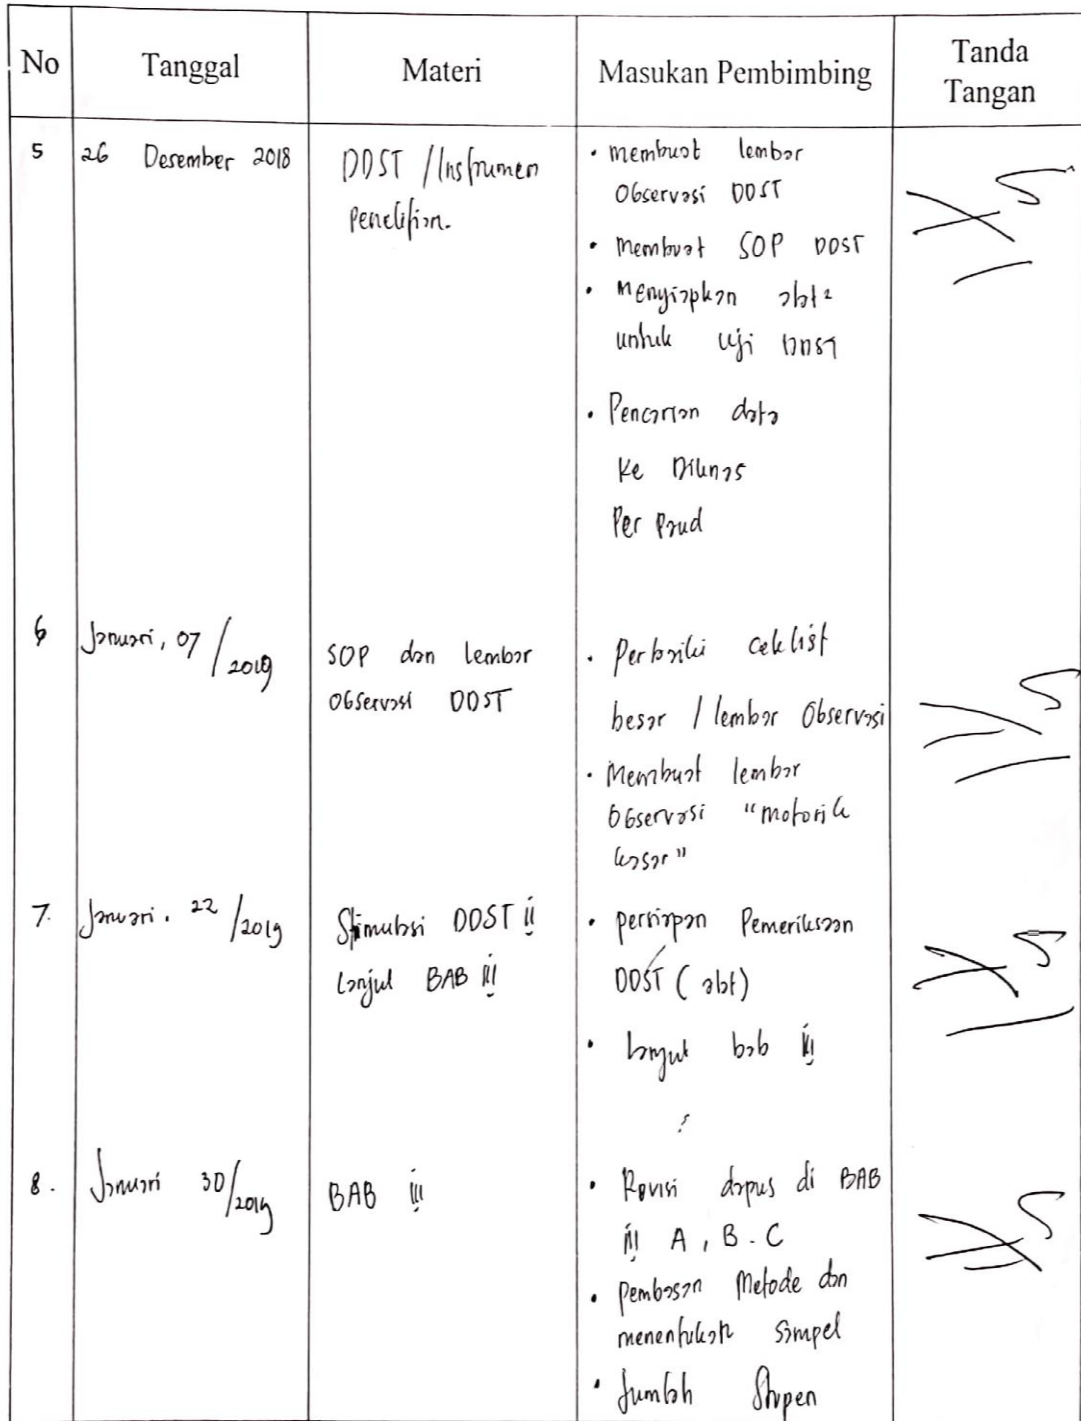 No
Tanggal
Materi
Masukan Pembimbing
Tanda
Tangan
5
26 Desember 2018
DDST / Instrumen
Penelitian.
• membuat lembar
Observasi DDST
• Membuat SOP DDST
• Menyiapkan alat²
untuk Uji DDST
• Pencarian data
Ke Diknas
Per Paud
6
Januari, 07 / 2019
SOP dan lembar
Observasi DDST
• Perbaiki ceklist
besar / lembar Observasi
• Membuat lembar
Observasi "motorik
kasar"
7.
Januari. 22 / 2019
Stimulasi DDST ii
Lanjut BAB iii
• persiapan Pemeriksaan
DDST ( alat)
• Lanjut bab iii
8.
Januari 30/2019
BAB iii
• Revisi dapus di BAB
iii A, B. C
• Pembasan Metode dan
menentukan sampel
• Jumlah